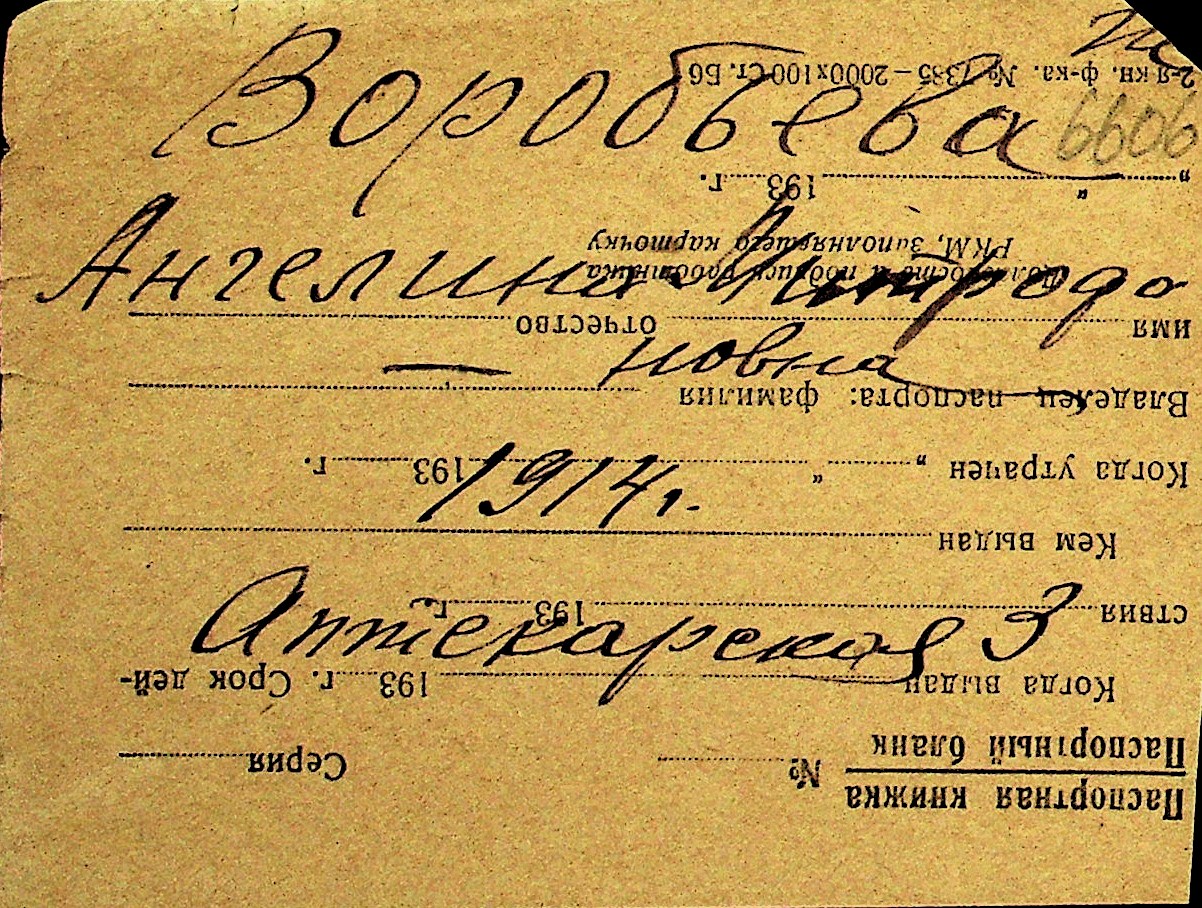 Воробьева
Ангелина Митродо
новна —
1914 г.
Аптекарская 3
Паспортная книжка
Паспортный бланк № Серия
Когда выдан 193 г. Срок дей-
ствия 193 г.
Кем выдан
Когда утрачен „ “ 193 г.
Владелец паспорта: фамилия
имя отчество
Должность и подпись работника
РКМ, заполнявшего карточку
„ “ 193 г.
2-я кн. ф-ка. № 7385 – 2000х100 Ст. Б6